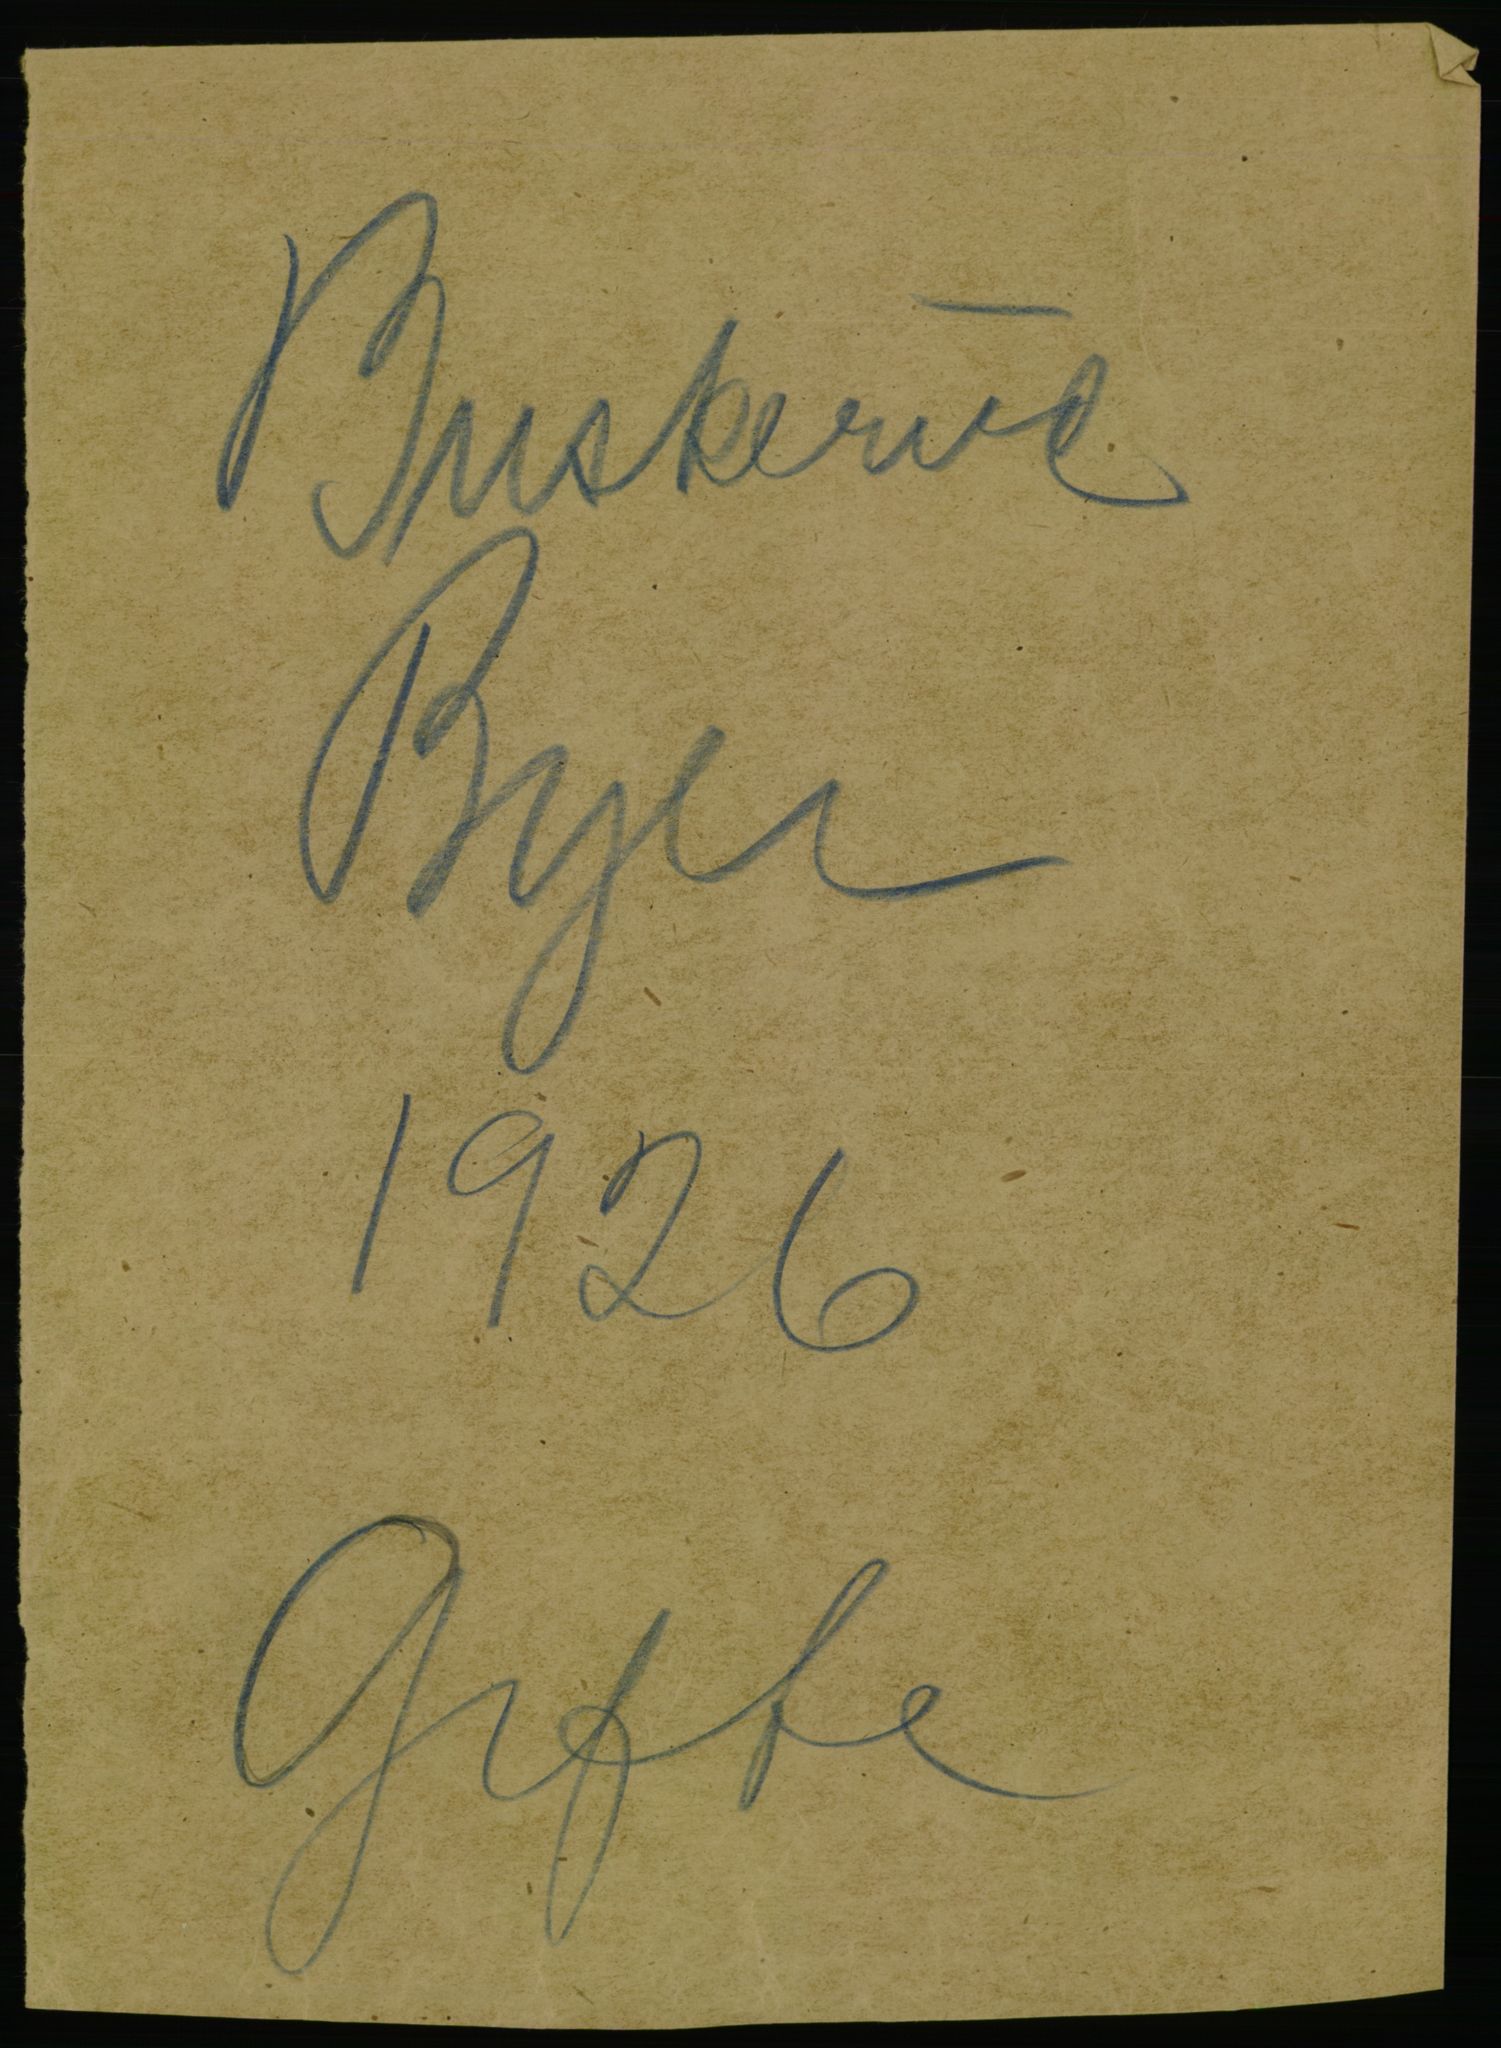 Buskerud
Byer
1926
Gifte